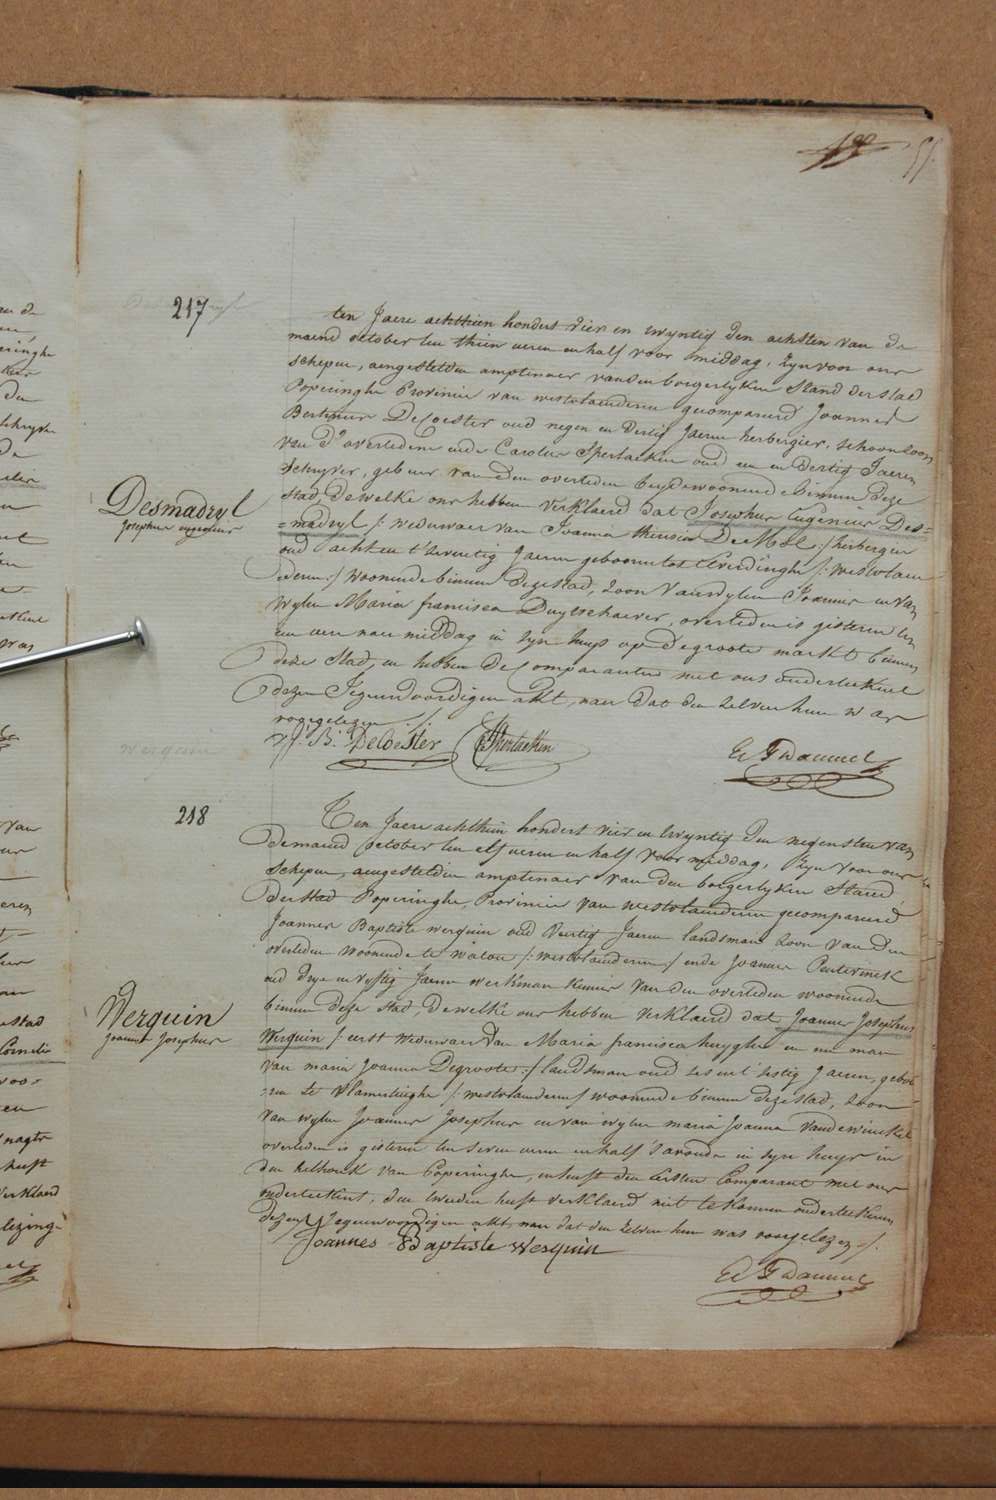 217
ten Jaere achthien hondert vier en twyntig den achsten van de
maend october ten thien uren en half voor middag, Zyn voor ons
schepen, aengestelden amptenaer van den borgerlyken Stand der stad
Poperinghe Provincie van westvlaenderen gecompareerd Joannes
Bertinus DeCoester oud negen en dertig Jaeren herbergier, schoonzoon
van d'overledene ende Carolus Sperlaeken oud een en dertig Jaeren
Schryver, gebeur van den overleden beyde woonende binnen deze
stad, Dewelke ons hebben verklaerd dat Josephus Eugenius Des=
Desmadryl
Josephus eugenius
=madryl /: weduwaer van Joanna theresia DeMol :/ herbergier
oud acht en t'seventig Jaeren geboren tot Elverdinghe /: westvlaen
deren :/ woonende binnen deze stad, zoon van wylen Joannes en van
wylen Maria francisca Duytschaever, overleden is gisteren ten
een uer naer middag in zyn huys op de groote markt binnen
deze Stad, en hebben de Comparanten met ons onderteekent
dezen Tegenwoordigen akt, naer dat den zelven hun was
voorgelezen ./.
J. B. DeCoester Sperlaeken
werquin
218
Ten Jaere achthien hondert vier en twyntig den negensten van
de maend october ten elf uren en half voor middag, Zyn voor ons
schepen, aengestelden amptenaer van den borgerlyken Stand
der stad Poperinghe, Provincie van westvlaenderen gecompareerd
Joannes Baptiste werquin oud veertig Jaeren landsman zoon van den
overleden woonende te watou /: westvlaenderen :/ ende Joannes
oud drye en vyftig Jaeren werkman kennis van den overleden woonende
binnen deze stad, Dewelke ons hebben verklaerd dat Joannes Josephus
Werquin
Joannes Josephus
Werquin /: eerst weduwaer van Maria francisca huyghe en nu man
van maria Joanna Degroote :/ landsman oud ses en t'sestig Jaeren, gebo=
=ren te Vlamertinghe /: westvlaenderen :/ woonende binnen deze stad, zoon
van wylen Joannes Josephus en van wylen maria Joanna Vandewinckel
overleden is gisteren ten seven uren en half 's avonds in zyn huys in
den helhoek van Poperinghe, en heeft den Eersten Comparant met ons
onderteekent, den tweeden heeft verklaerd niet te konnen onderteekenen
dezen Tegenwoordigen akt, naer dat den zelven hun was voorgelezen ./.
Joannes Baptiste werquin